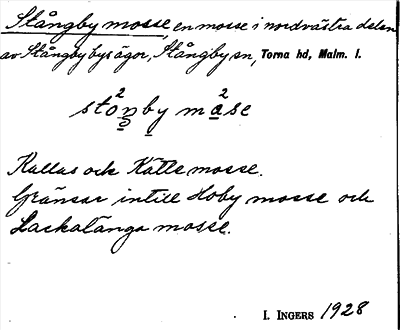 Stångby mosse, en mosse i nordvästra delen
av Stångby bys ägor, Stångby sn, Torna hd, Malm. l.
stånby måse
Kallas och Kätte mosse.
Gränsar intill Hoby mosse och
Lackalänga mosse.
I. INGERS 1928